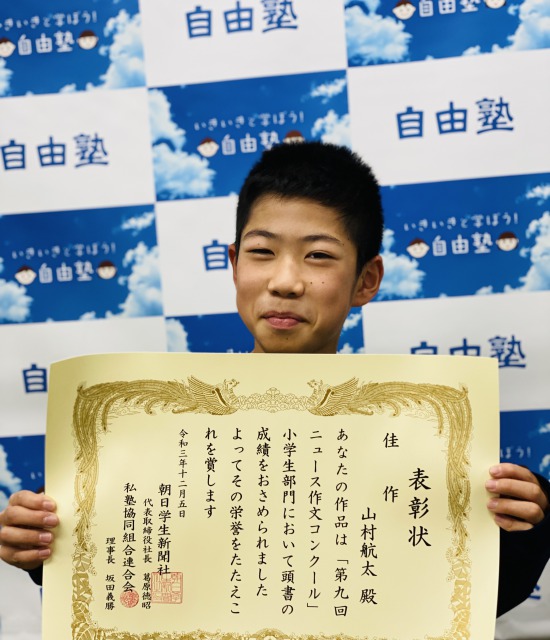 いきいきと学ぼう!
自由塾
自由塾
いきいきと学ぼう!
自由塾
自由塾
自由塾
いきいきと学ぼう!
自由塾
いきいきと学ぼう!
自由塾
自由塾
表彰状
佳作
山村航太 殿
あなたの作品は「第九回
ニュース作文コンクール」
小学生部門において頭書の
成績をおさめられました
よってその栄誉をたたえこ
れを賞します
令和三年十二月五日
朝日学生新聞社
代表取締役社長 葛原徳昭
私塾協同組合連合会
理事長 坂田義勝